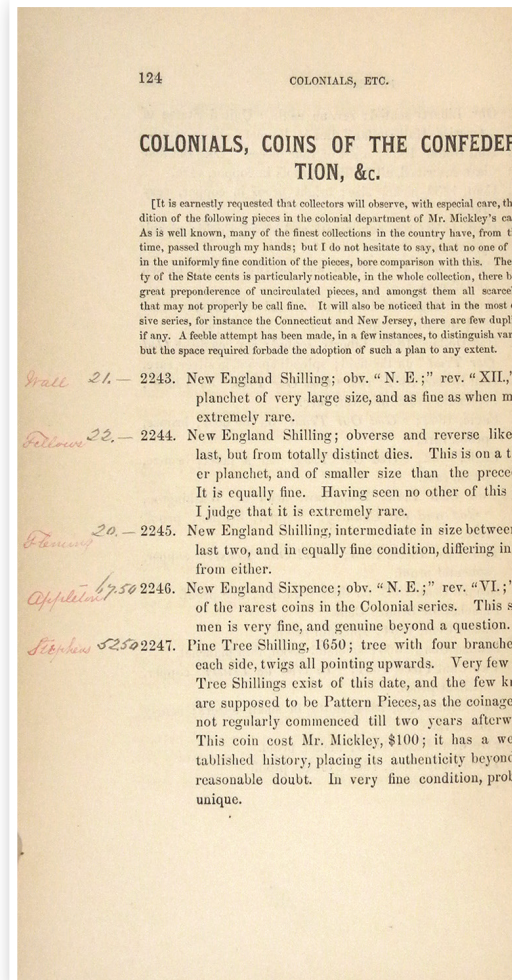 124 COLONIALS, ETC.
COLONIALS, COINS OF THE CONFEDER
TION, &c.
[It is earnestly requested that collectors will observe, with especial care, th
dition of the following pieces in the colonial department of Mr. Mickley's ca
As is well known, many of the finest collections in the country have, from t
time, passed through my hands; but I do not hesitate to say, that no one of
in the uniformly fine condition of the pieces, bore comparison with this. The
ty of the State cents is particularly noticable, in the whole collection, there b
great preponderence of uncirculated pieces, and amongst them all scarce
that may not properly be call fine. It will also be noticed that in the most
sive series, for instance the Connecticut and New Jersey, there are few dupl
if any. A feeble attempt has been made, in a few instances, to distinguish var
but the space required forbade the adoption of such a plan to any extent.
Wall 21.— 2243. New England Shilling; obv. “N. E.;” rev. “XII.,”
planchet of very large size, and as fine as when m
extremely rare.
Fellows 22.— 2244. New England Shilling; obverse and reverse like
last, but from totally distinct dies. This is on a t
er planchet, and of smaller size than the prece
It is equally fine. Having seen no other of this
I judge that it is extremely rare.
Fleming 20.— 2245. New England Shilling, intermediate in size betwee
last two, and in equally fine condition, differing in
from either.
Appleton 17.50 2246. New England Sixpence; obv. “N. E.;” rev. “VI.;”
of the rarest coins in the Colonial series. This s
men is very fine, and genuine beyond a question.
Stephens 5250 2247. Pine Tree Shilling, 1650; tree with four branche
each side, twigs all pointing upwards. Very few
Tree Shillings exist of this date, and the few k
are supposed to be Pattern Pieces, as the coinage
not regularly commenced till two years afterw
This coin cost Mr. Mickley, $100; it has a we
tablished history, placing its authenticity beyond
reasonable doubt. In very fine condition, prob
unique.